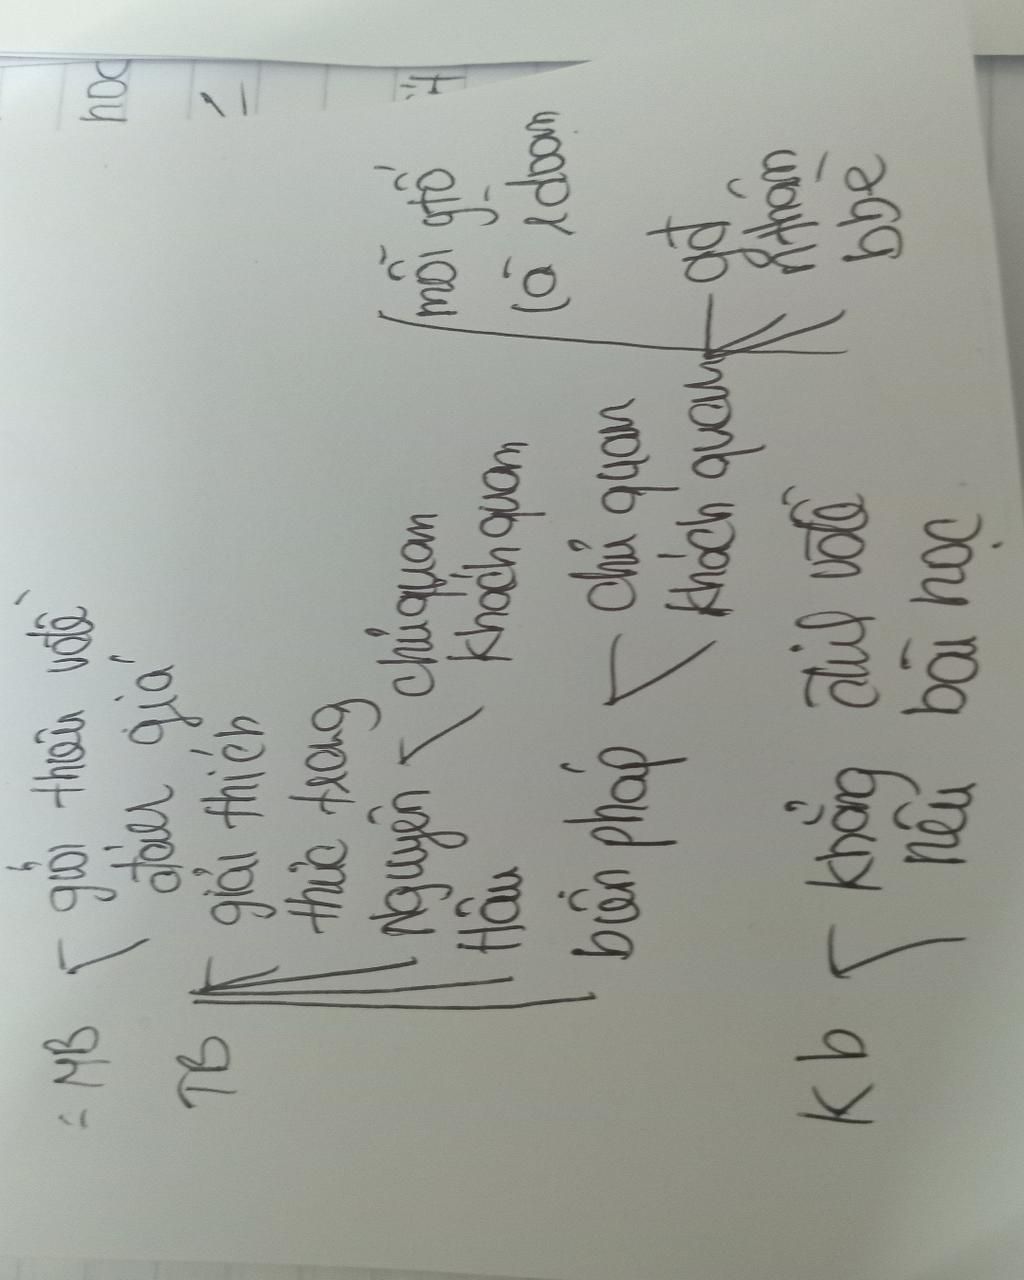 : MB giới thiệu vđề
đánh giá
TB giải thích
thức trạng
Nguyên chủ quan
khách quan
Hâu
biên pháp chủ quan
khách quan
(mỗi gfð
là 1 đoạn
gđ
nthân
Kb khẳng định vđề
nêu bài học
học